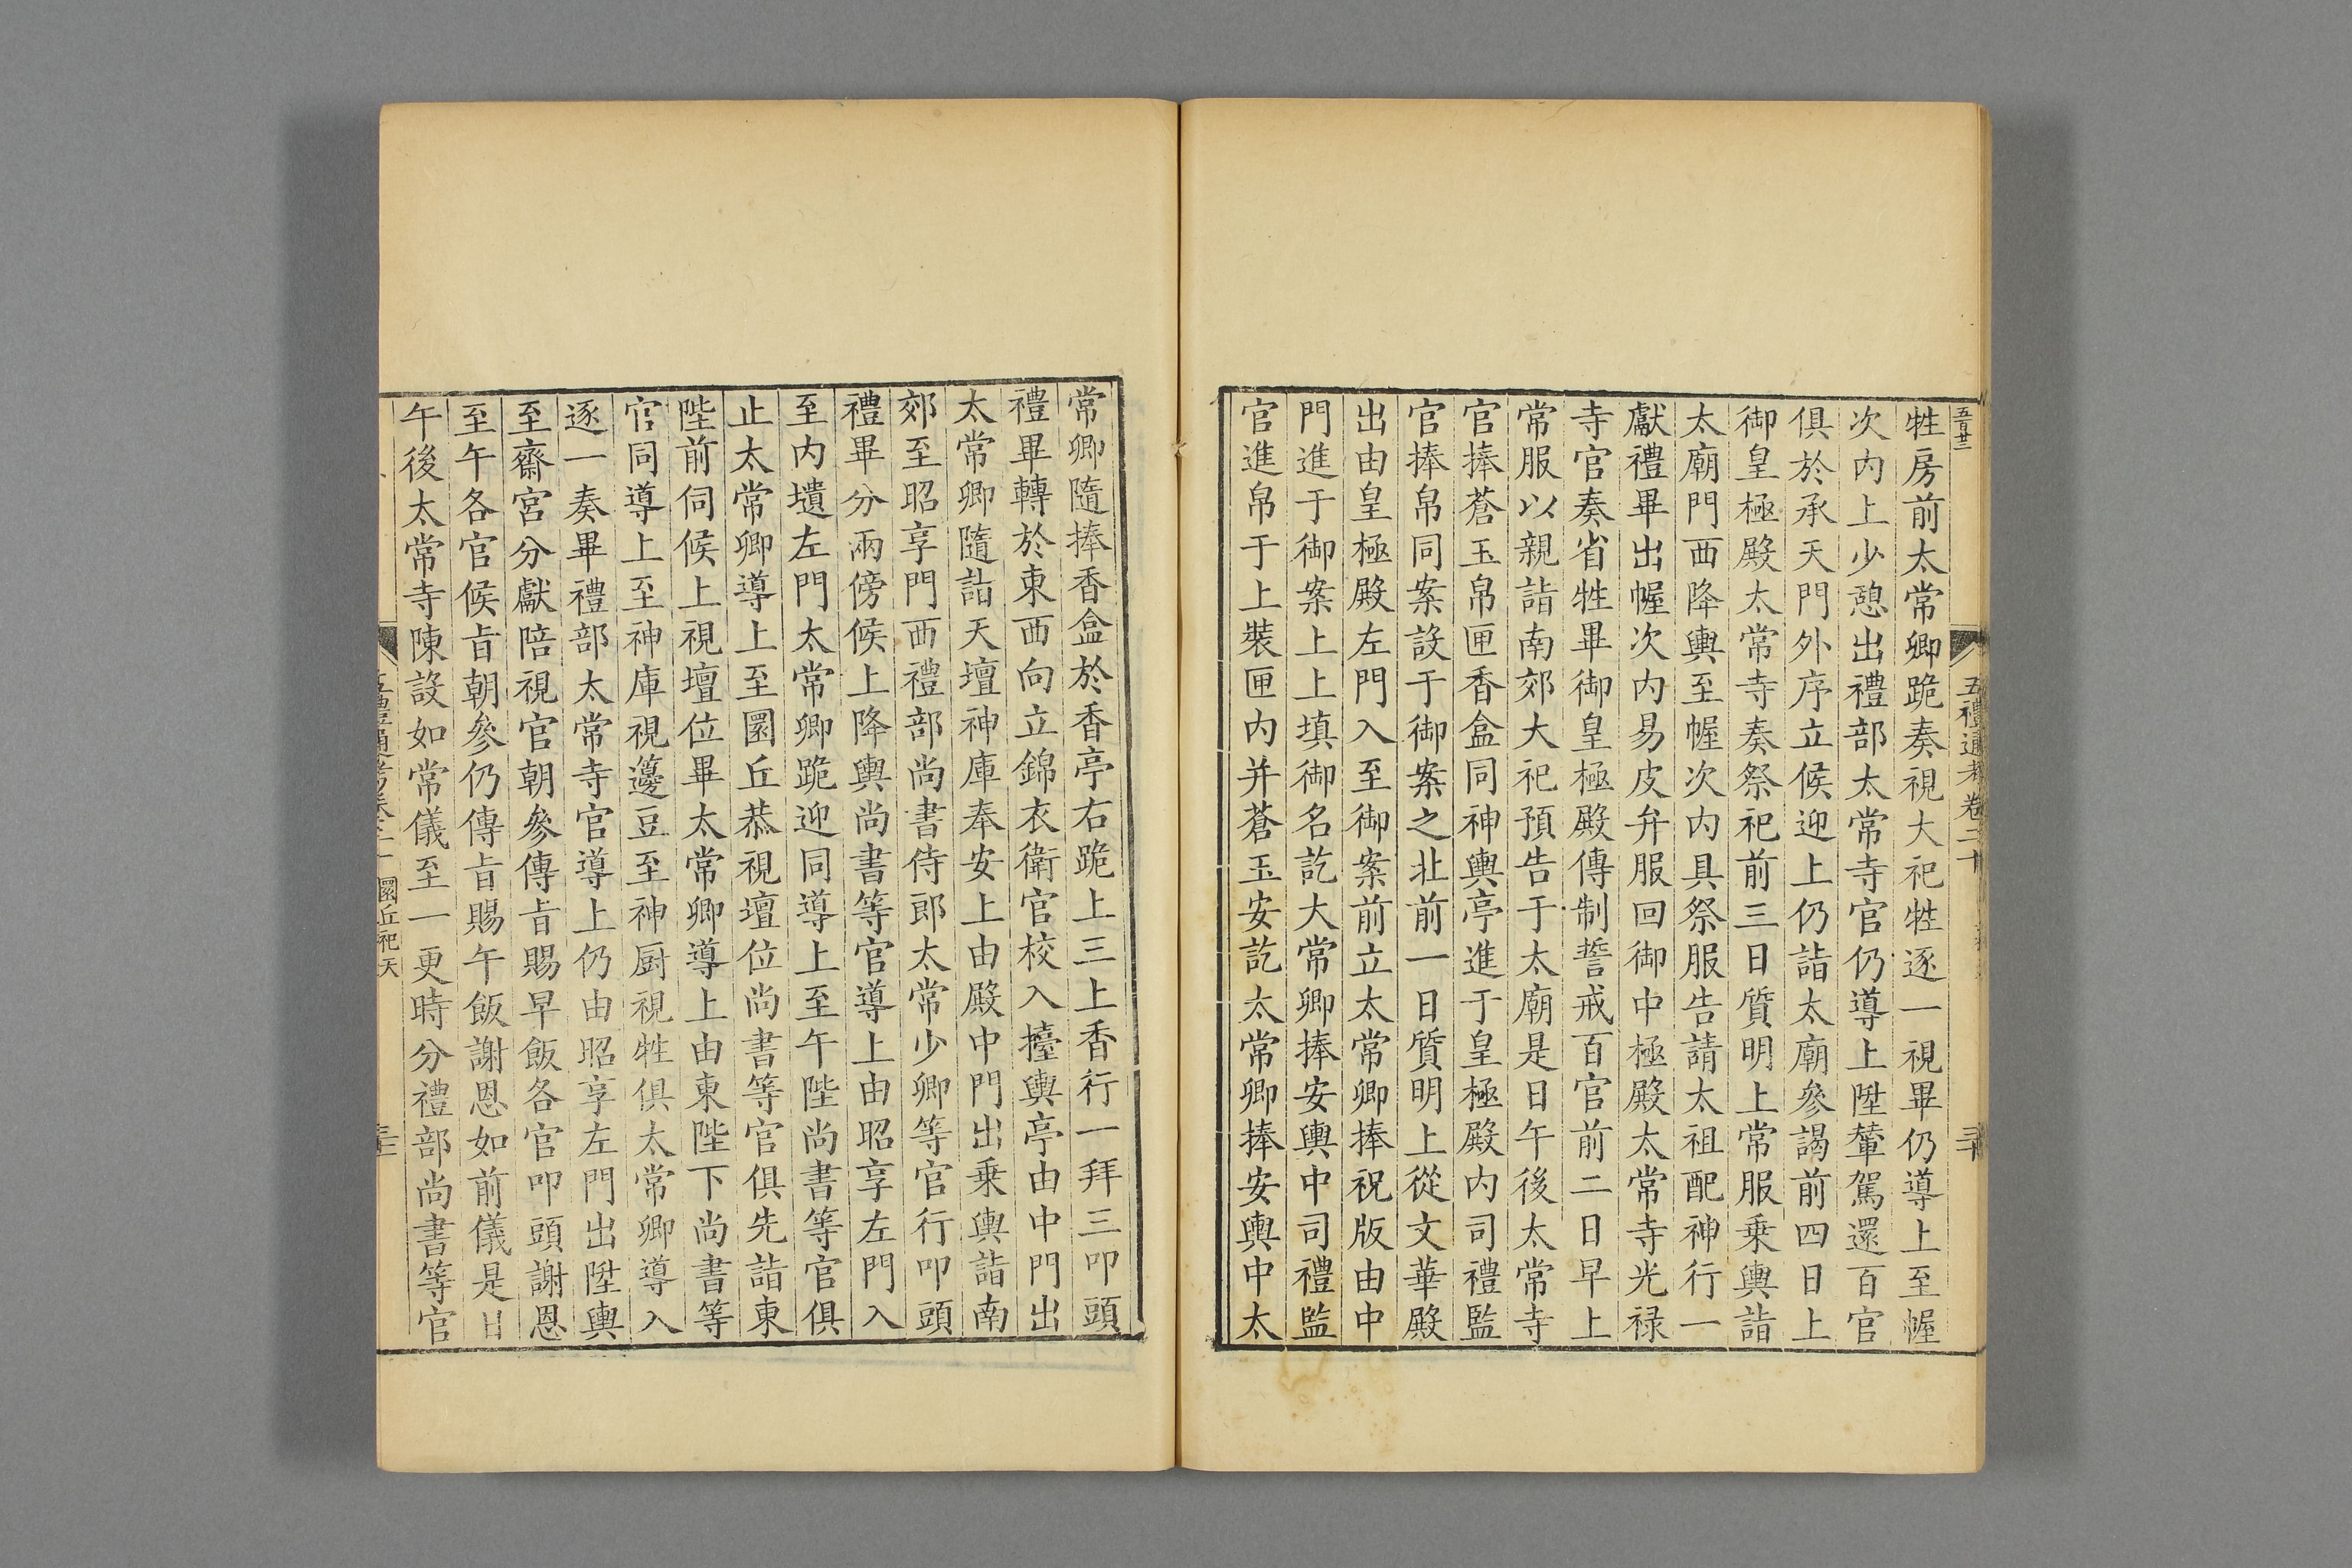 五禮通考卷二十
三十
牲房前太常卿跪奏視大祀牲逐一視畢仍導上至幄
次内上少憩出禮部太常寺官仍導上陞輦駕還百官
俱於承天門外序立候迎上仍詣太廟參謁前四日上
御皇極殿太常寺奏祭祀前三日質明上常服乗輿詣
太廟門西降輿至幄次内具祭服告請太祖配神行一
獻禮畢出幄次内易皮弁服回御中極殿太常寺光禄
寺官奏省牲畢御皇極殿傳制誓戒百官前二日早上
常服以親詣南郊大祀預告于太廟是日午後太常寺
官捧蒼玉帛匣香盒同神輿亭進于皇極殿内司禮監
官捧帛同案設于御案之北前一日質明上從文華殿
出由皇極殿左門入至御案前立太常卿捧祝版由中
門進于御案上上填御名訖大常卿捧安輿中司禮監
官進帛于上裝匣内并蒼玉安訖太常卿捧安輿中太
常卿隨捧香盒於香亭右跪上三上香行一拜三叩頭
禮畢轉於東西向立錦衣衛官校入擡輿亭由中門出
太常卿隨詣天壇神庫奉安上由殿中門出乗輿詣南
郊至昭享門西禮部尚書侍郎太常少卿等官行叩頭
禮畢分兩傍候上降輿尚書等官導上由昭享左門入
至内壝左門太常卿跪迎同導上至午陛尚書等官俱
止太常卿導上至圜丘恭視壇位尚書等官俱先詣東
陛前伺候上視壇位畢太常卿導上由東陛下尚書等
官同導上至神庫視籩豆至神厨視牲俱太常卿導入
逐一奏畢禮部太常寺官導上仍由昭享左門出陞輿
至齋宮分獻陪視官朝參傳㫖賜早飯各官叩頭謝恩
至午各官候㫖朝參仍傳㫖賜午飯謝恩如前儀是日
午後太常寺陳設如常儀至一更時分禮部尚書等官
圜丘祀天